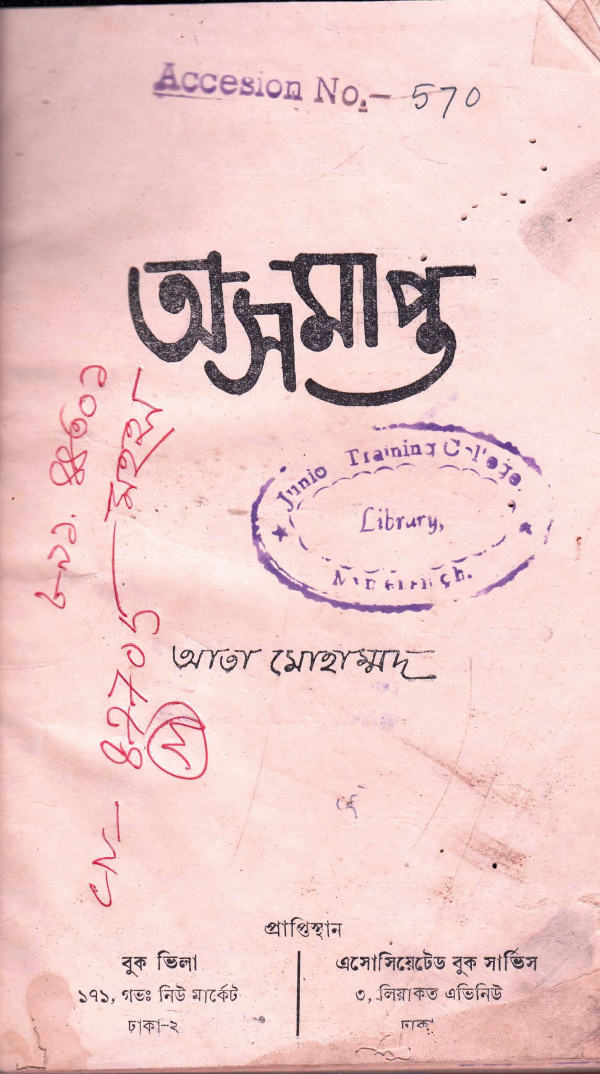 Accesion No.- 570
অসমাপ্ত
Junio Training College.
Library,
আতা মোহাম্মদ
CN- 87705
M
প্রাপ্তিস্থান
বুক ভিলা
১৭১, গভঃ নিউ মার্কেট
ঢাকা-২
এসোসিয়েটেড বুক সার্ভিস
৩, লিয়াকত এভিনিউ